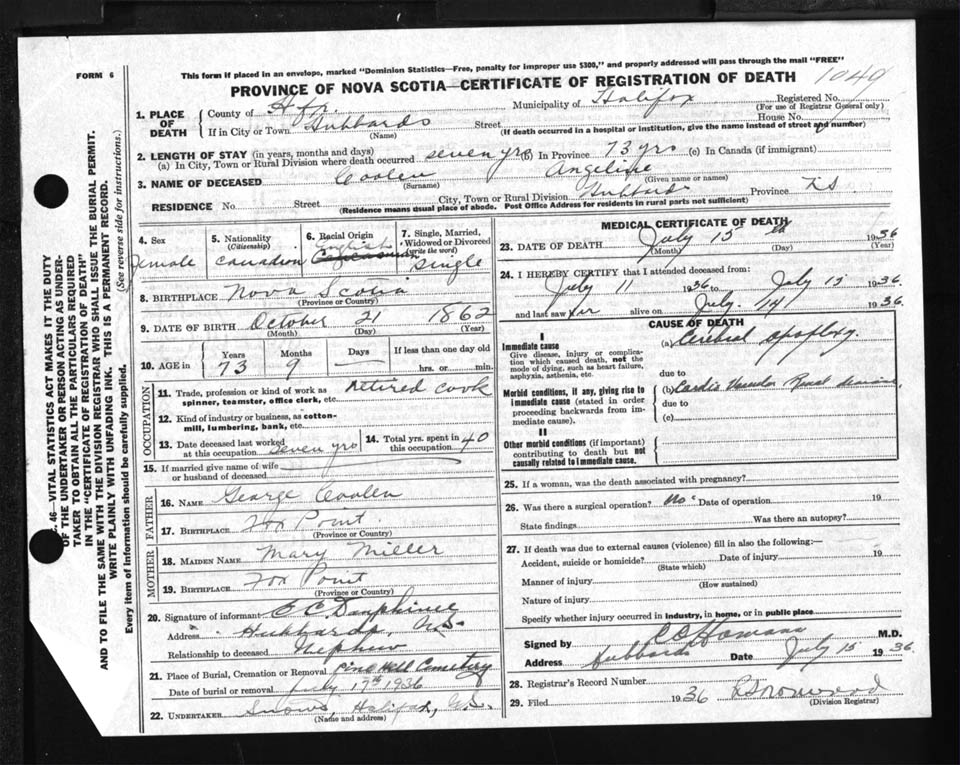 FORM 6
This form if placed in an envelope, marked "Dominion Statistics—Free, penalty for improper use $300," and properly addressed will pass through the mail "FREE"
PROVINCE OF NOVA SCOTIA—CERTIFICATE OF REGISTRATION OF DEATH
1. PLACE OF DEATH
County of Hfx. Municipality of Halifax Registered No.
(For use of Registrar General only)
If in City or Town Hubbards Street House No.
(Name) (If death occurred in a hospital or institution, give the name instead of street and number)
2. LENGTH OF STAY (in years, months and days)
(a) In City, Town or Rural Division where death occurred seven yrs (b) In Province 73 yrs (c) In Canada (if immigrant)
3. NAME OF DECEASED Coolen Angeline
(Surname) (Given name or names)
RESIDENCE No. Street City, Town or Rural Division Hubbards Province N.S.
(Residence means usual place of abode. Post Office Address for residents in rural parts not sufficient)
4. Sex
Female
5. Nationality
(Citizenship)
Canadian
6. Racial Origin
English
7. Single, Married, Widowed or Divorced
(write the word)
Single
8. BIRTHPLACE Nova Scotia
(Province or Country)
9. DATE OF BIRTH October 21 1862
(Month) (Day) (Year)
10. AGE in
Years Months Days If less than one day old
73 9 — hrs. or min.
OCCUPATION
11. Trade, profession or kind of work as spinner, teamster, office clerk, etc. retired cook
12. Kind of industry or business, as cotton-mill, lumbering, bank, etc.
13. Date deceased last worked at this occupation seven yrs
14. Total yrs. spent in this occupation 40
15. If married give name of wife or husband of deceased
FATHER
16. NAME George Coolen
17. BIRTHPLACE Fox Point
(Province or Country)
MOTHER
18. MAIDEN NAME Mary Miller
19. BIRTHPLACE Fox Point
(Province or Country)
20. Signature of informant C. C. Dauphinee
Address Hubbards, N.S.
Relationship to deceased Nephew
21. Place of Burial, Cremation or Removal Pine Hill Cemetery
Date of burial or removal July 17th 1936
22. UNDERTAKER Snows, Halifax, N.S.
(Name and address)
MEDICAL CERTIFICATE OF DEATH
23. DATE OF DEATH July 15th 1936
(Month) (Day) (Year)
24. I HEREBY CERTIFY that I attended deceased from:
July 11 1936 to July 15 1936
and last saw her alive on July 14 1936.
CAUSE OF DEATH
I
Immediate cause
Give disease, injury or complication which caused death, not the mode of dying, such as heart failure, asphyxia, asthenia, etc.
(a) Cerebral apoplexy.
due to
Morbid conditions, if any, giving rise to immediate cause (stated in order proceeding backwards from immediate cause).
(b) Cardio Vascular Renal disease
due to
(c)
II
Other morbid conditions (if important) contributing to death but not causally related to immediate cause.
25. If a woman, was the death associated with pregnancy?
26. Was there a surgical operation? No. Date of operation 19
State findings Was there an autopsy?
27. If death was due to external causes (violence) fill in also the following:—
Accident, suicide or homicide? Date of injury 19
(State which)
Manner of injury
(How sustained)
Nature of injury
Specify whether injury occurred in industry, in home, or in public place
Signed by M.D.
Address Hubbards Date July 15 1936.
28. Registrar's Record Number
29. Filed 1936
(Division Registrar)
46 VITAL STATISTICS ACT MAKES IT THE DUTY
OF THE UNDERTAKER OR PERSON ACTING AS UNDERTAKER TO OBTAIN ALL THE PARTICULARS REQUIRED
IN THE "CERTIFICATE OF REGISTRATION OF DEATH"
AND TO FILE THE SAME WITH THE DIVISION REGISTRAR WHO SHALL ISSUE THE BURIAL PERMIT.
WRITE PLAINLY WITH UNFADING INK. THIS IS A PERMANENT RECORD.
Every item of information should be carefully supplied. (See reverse side for instructions.)